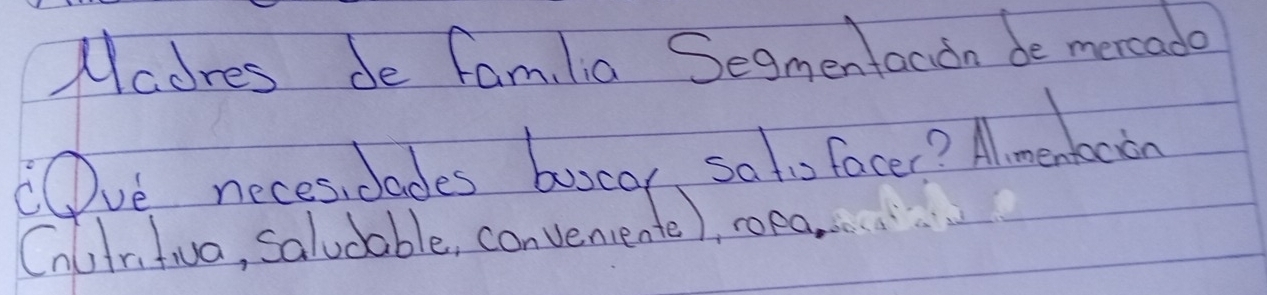 Madres de familia Segmentación de mercado
¿Qué necesidades buscar satisfacer? Alimentación
(nutritiva, saludable, conveniente), ropa.